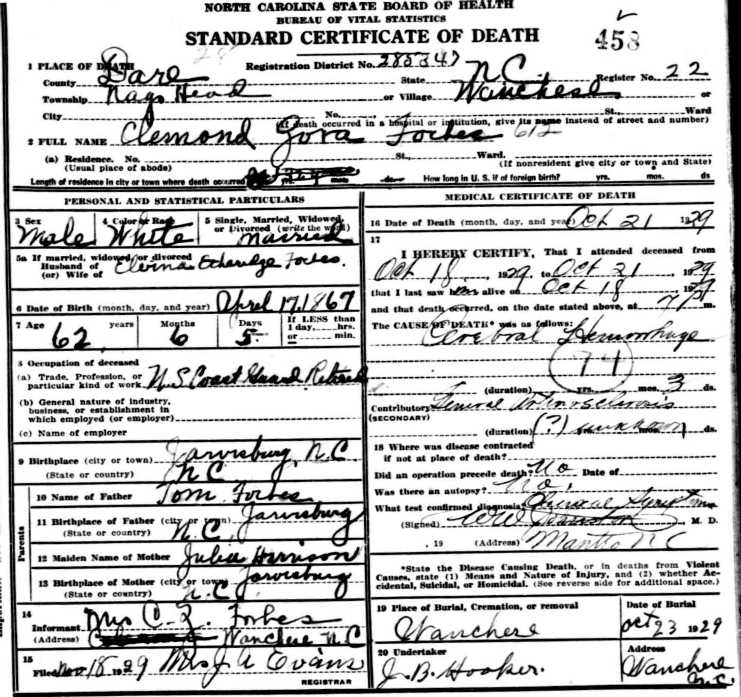 NORTH CAROLINA STATE BOARD OF HEALTH
BUREAU OF VITAL STATISTICS
STANDARD CERTIFICATE OF DEATH 458
1 PLACE OF DEATH Registration District No. 285347
County Dare State N.C. Register No. 22
Township Nags Head or Village Wanchese or
City No. St., Ward
(If death occurred in a hospital or institution, give its name instead of street and number)
2 FULL NAME Clemond Zora Forbes 612
(a) Residence. No. St., Ward.
(Usual place of abode) (If nonresident give city or town and State)
Length of residence in city or town where death occurred yrs. mos. ds. How long in U. S. if of foreign birth? yrs. mos. ds
PERSONAL AND STATISTICAL PARTICULARS
3 Sex 4 Color or Race 5 Single, Married, Widowed, or Divorced (write the word)
Male White Married
5a If married, widowed, or divorced
Husband of
(or) Wife of Elvina Etheridge Forbes.
6 Date of Birth (month, day, and year) April 17, 1867
7 Age 62 years Months 6 Days 5 If LESS than 1 day, hrs. or min.
8 Occupation of deceased
(a) Trade, Profession, or particular kind of work U S Coast Guard Retired
(b) General nature of industry, business, or establishment in which employed (or employer)
(c) Name of employer
9 Birthplace (city or town) Jarvisburg, N.C
(State or country) N C
Parents
10 Name of Father Tom Forbes
11 Birthplace of Father (city or town) Jarvisburg
(State or country) N.C.
12 Maiden Name of Mother Julia Harrison
13 Birthplace of Mother (city or town) Jarvisburg
(State or country) N.C.
14
Informant Mrs C. Z. Forbes
(Address) Wanchese N.C
15
Filed Nov 18, 1929 Mrs J A Evans
REGISTRAR
MEDICAL CERTIFICATE OF DEATH
16 Date of Death (month, day, and year) Oct 21 1929
17
I HEREBY CERTIFY, That I attended deceased from
Oct 18, 1929 to Oct 21, 1929
that I last saw him alive on Oct 18 1929
and that death occurred, on the date stated above, at 7 P m.
The CAUSE OF DEATH* was as follows:
Cerebral Hemorrhage
74
(duration) yrs. mos. 3 ds.
Contributory General Arteriosclerosis
(SECONDARY)
(duration) (?) unknown ds.
18 Where was disease contracted
if not at place of death?
Did an operation precede death? No Date of
Was there an autopsy? No.
What test confirmed diagnosis? Clinical Symptoms
(Signed) M. D.
, 19 (Address) Manteo N C
*State the Disease Causing Death, or in deaths from Violent
Causes, state (1) Means and Nature of Injury, and (2) whether Ac-
cidental, Suicidal, or Homicidal. (See reverse side for additional space.)
19 Place of Burial, Cremation, or removal Date of Burial
Wanchese Oct 23 1929
20 Undertaker Address
J. B. Hooker. Wanchese N.C.